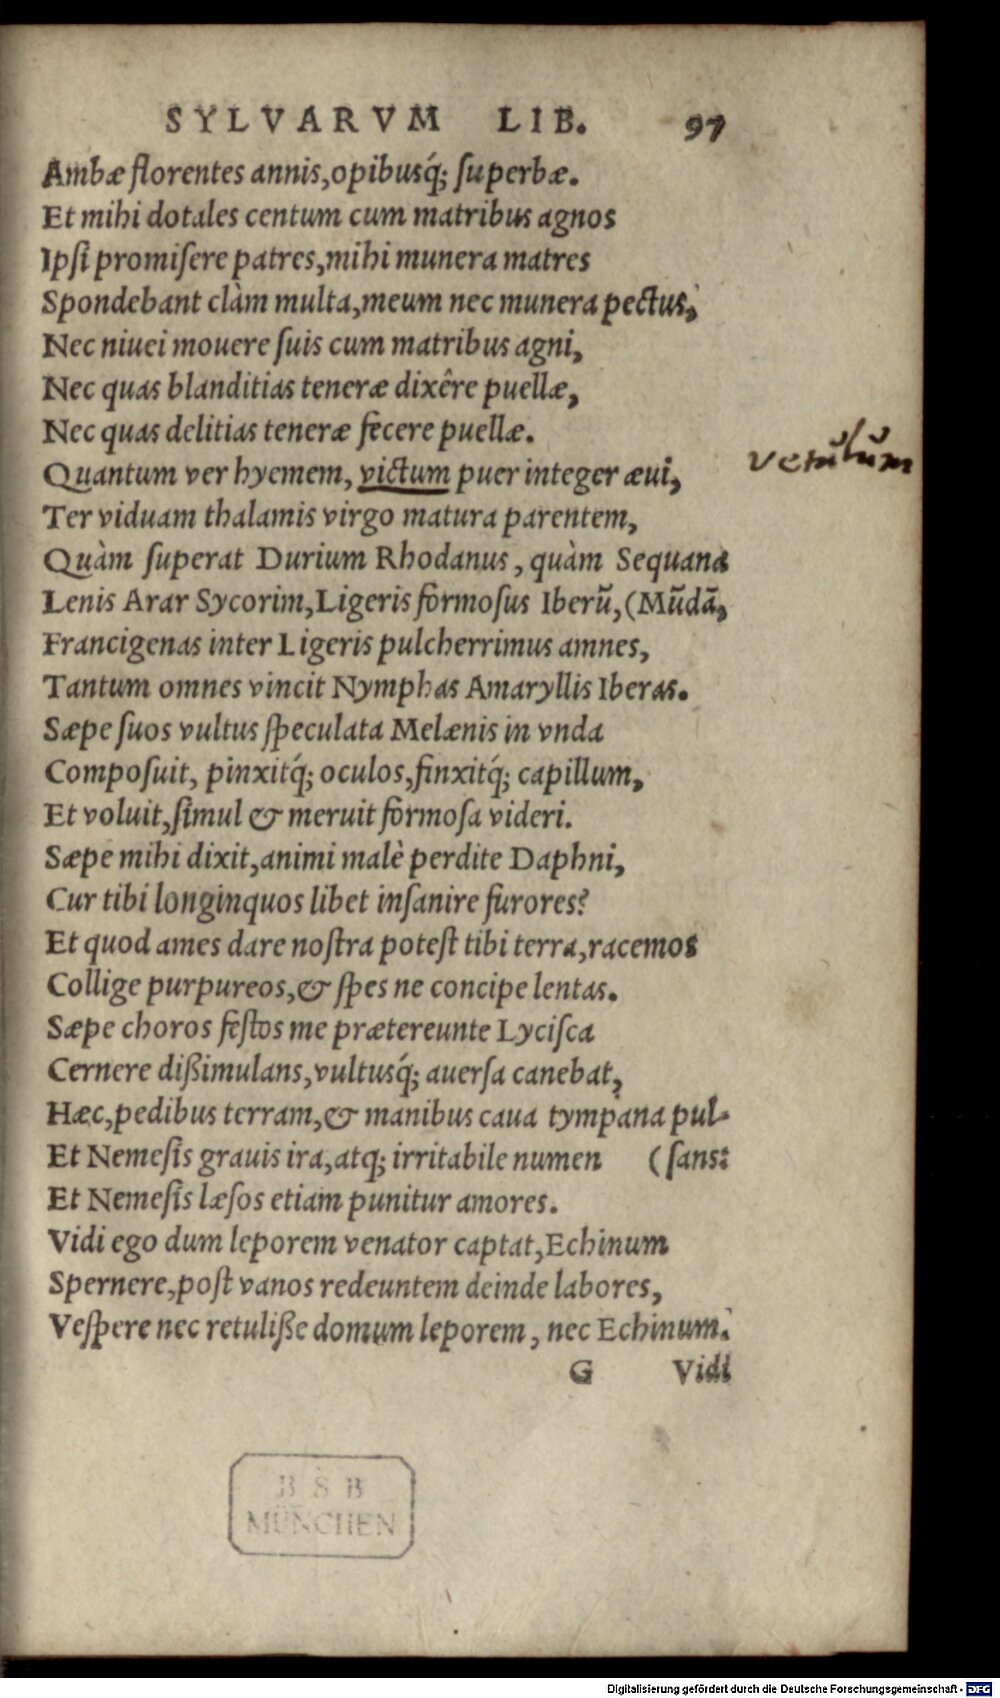 SYLVARVM LIB. 97
Ambæ florentes annis, opibusq́; superbæ.
Et mihi dotales centum cum matribus agnos
Ipsi promisere patres, mihi munera matres
Spondebant clàm multa, meum nec munera pectus,
Nec niuei mouere suis cum matribus agni,
Nec quas blanditias teneræ dixêre puellæ,
Nec quas delitias teneræ fecere puellæ.
Quantum ver hyemem, victum puer integer æui,
vetulum
Ter viduam thalamis virgo matura parentem,
Quàm superat Durium Rhodanus, quàm Sequana
Lenis Arar Sycorim, Ligeris formosus Iberũ, (Mũdã,
Francigenas inter Ligeris pulcherrimus amnes,
Tantum omnes vincit Nymphas Amaryllis Iberas.
Sæpe suos vultus speculata Melænis in vnda
Composuit, pinxitq́; oculos, finxitq́; capillum,
Et voluit, simul & meruit formosa videri.
Sæpe mihi dixit, animi malè perdite Daphni,
Cur tibi longinquos libet insanire furores?
Et quod ames dare nostra potest tibi terra, racemos
Collige purpureos, & spes ne concipe lentas.
Sæpe choros festos me prætereunte Lycisca
Cernere dißimulans, vultusq́; auersa canebat,
Hæc, pedibus terram, & manibus caua tympana pul-
Et Nemesis grauis ira, atq; irritabile numen (sans:
Et Nemesis læsos etiam punitur amores.
Vidi ego dum leporem venator captat, Echinum
Spernere, post vanos redeuntem deinde labores,
Vespere nec retuliße domum leporem, nec Echinum.
G Vidi
B S B
MÜNCHEN
Digitalisierung gefördert durch die Deutsche Forschungsgemeinschaft - DFG